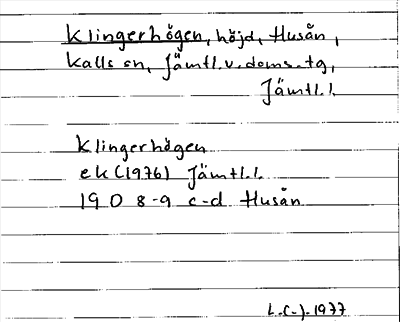 Klingerhögen, höjd, Husån,
Kalls sn, Jämtl.v.doms.tg,
Jämtl.l.
Klingerhögen
ek (1976) Jämtl.l.
19 D 8-9 c-d Husån
L.C-J-1977